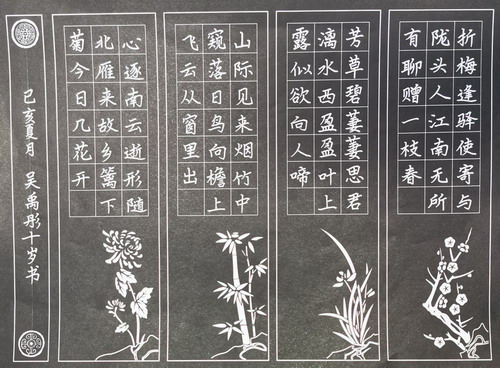 折梅逢驿使寄与
陇头人江南无所
有聊赠一枝春
芳草碧萋萋思君
漓水西盈盈叶上
露似欲向人啼
山际见来烟竹中
窥落日鸟向檐上
飞云从窗里出
心逐南云逝形随
北雁来故乡篱下
菊今日几花开
己亥夏月 吴禹彤十岁书